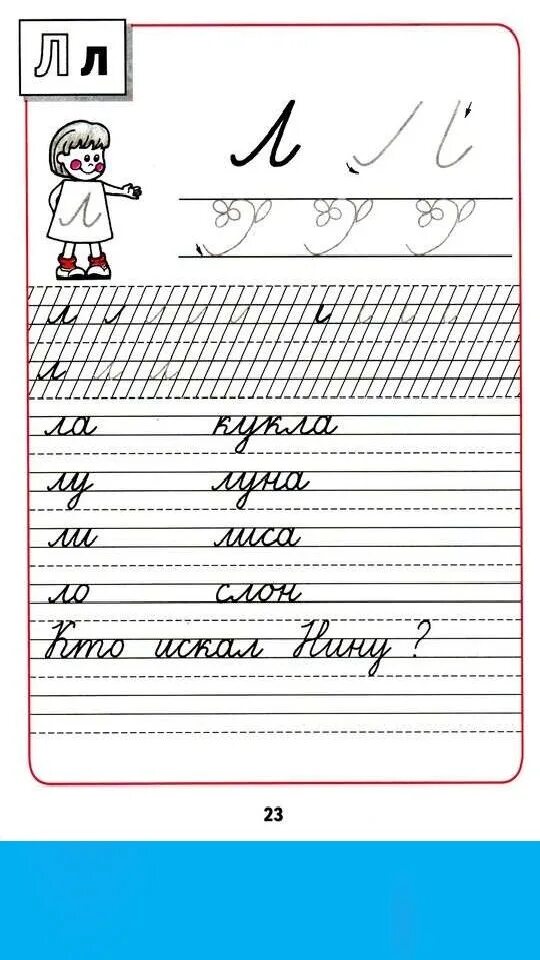 Л л
Л
Л
л л
л
ла кукла
лу луна
ли лиса
ло слон
Кто искал Нину ?
23